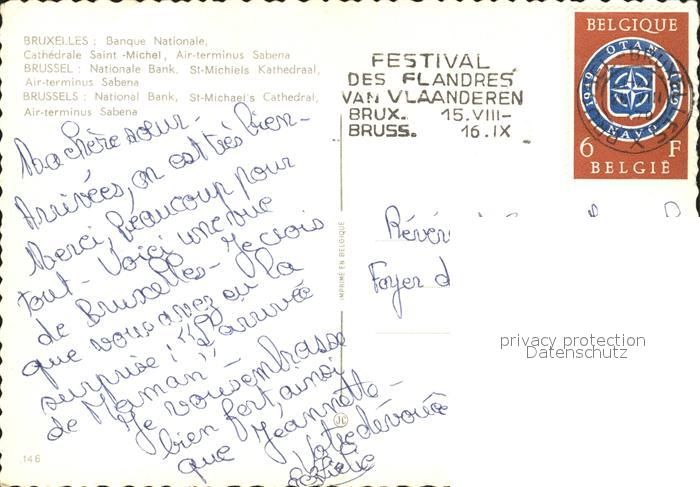 BRUXELLES : Banque Nationale,
Cathédrale Saint-Michel, Air-terminus Sabena
BRUSSEL : Nationale Bank, St-Michiels Kathedraal,
Air-terminus Sabena
BRUSSELS : National Bank, St-Michael's Cathedral,
Air-terminus Sabena
FESTIVAL
DES FLANDRES
VAN VLAANDEREN
BRUX. 15.VIII-
BRUSS. 16.IX
BELGIQUE
OTAN
1949
NAVO
6 F
BELGIË
Ma chère soeur -
Arrivées, on est très bien -
Merci, beaucoup pour
tout - Voici une vue
de Bruxelles - Je crois
que vous avez eu la
surprise ! "L'arrivée
de Maman" -
Je vous embrasse
bien fort, ainsi
que Jeannette -
Votre dévouée
IMPRIMÉ EN BELGIQUE
Révér
Foyer d
privacy protection
Datenschutz
146